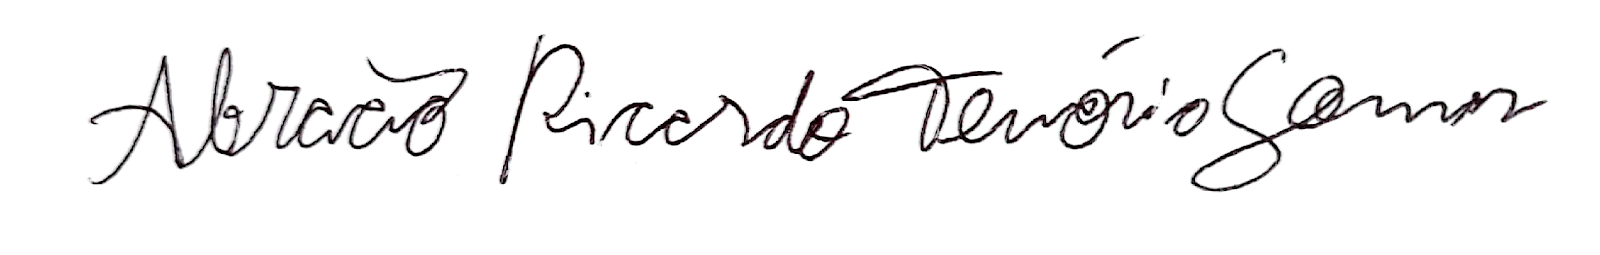 Abraão Ricardo Tenório Gomes